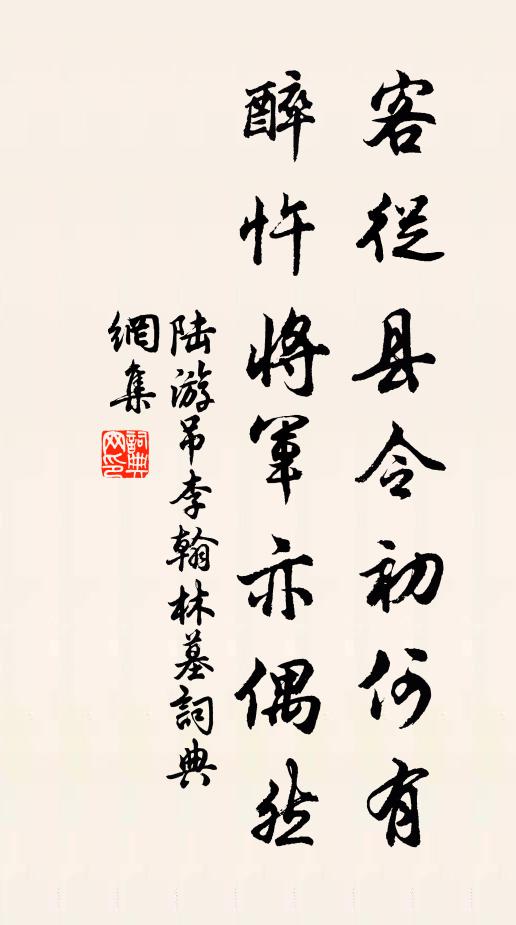 客從县令初何有
醉忤將軍亦偶然
陆游吊李翰林墓詞典
網集
詞典网印